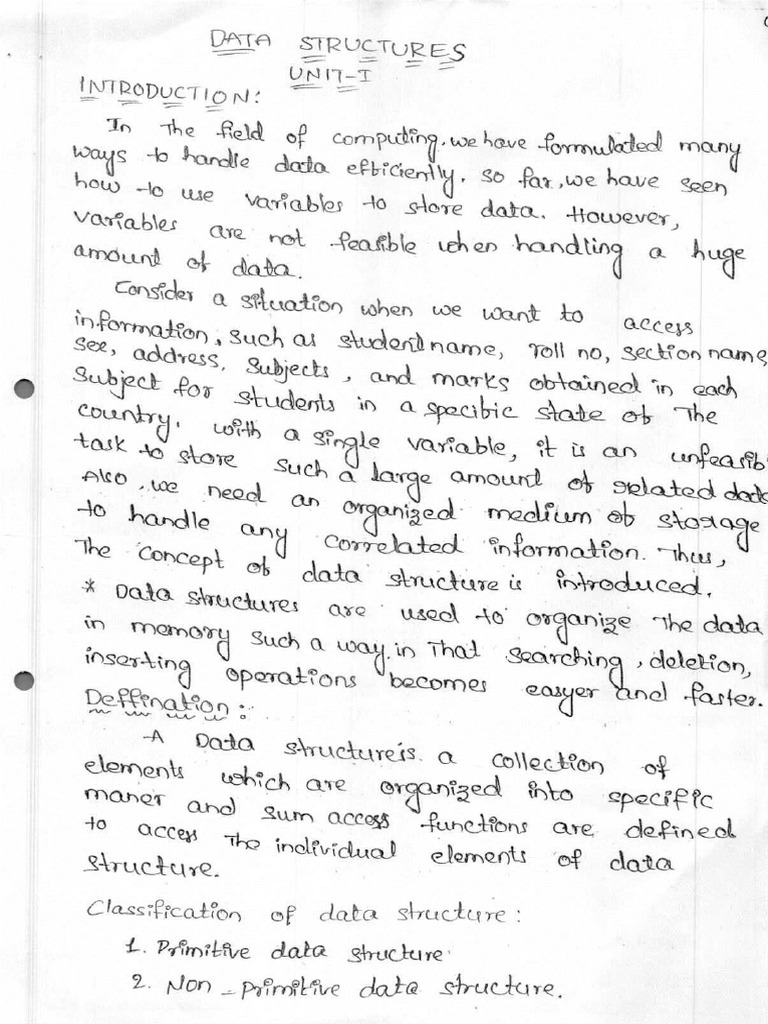 DATA STRUCTURES
UNIT-I
INTRODUCTION:
In The field of computing, we have formulated many
ways to handle data efficiently. So far, we have seen
how to use variables to store data. However,
variables are not feasible when handling a huge
amount of data.
Consider a situation when we want to access
information, such as student name, roll no, section name,
sex, address, subjects, and marks obtained in each
subject for students in a specific state of The
country. with a single variable, it is an unfeasib
task to store such a large amount of related data
Also, we need an organized medium of storage
to handle any correlated information. Thus,
The concept of data structure is introduced.
* Data structures are used to organize The data
in memory such a way in That searching, deletion,
inserting operations becomes easyer and faster.
Deffination:
A Data structure is a collection of
elements which are organized into specific
maner and sum access functions are defined
to access The individual elements of data
structure.
Classification of data structure:
1. Primitive data structure
2. Non-primitive data structure.